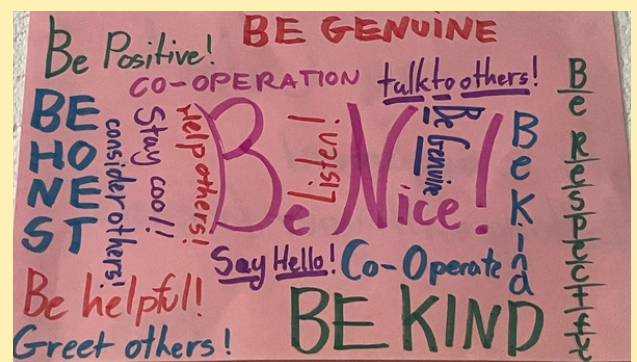 BE GENUINE
Be Positive!
CO-OPERATION
talk to others!
BE
HO
NE
ST
consider others!
Stay cool!!
Help others!
Be Nice!
Listen!
Be Genuie
Be Kind
Be Respectful
Say Hello!
Co-Operate
Be helpful!
BE KIND
Greet others!